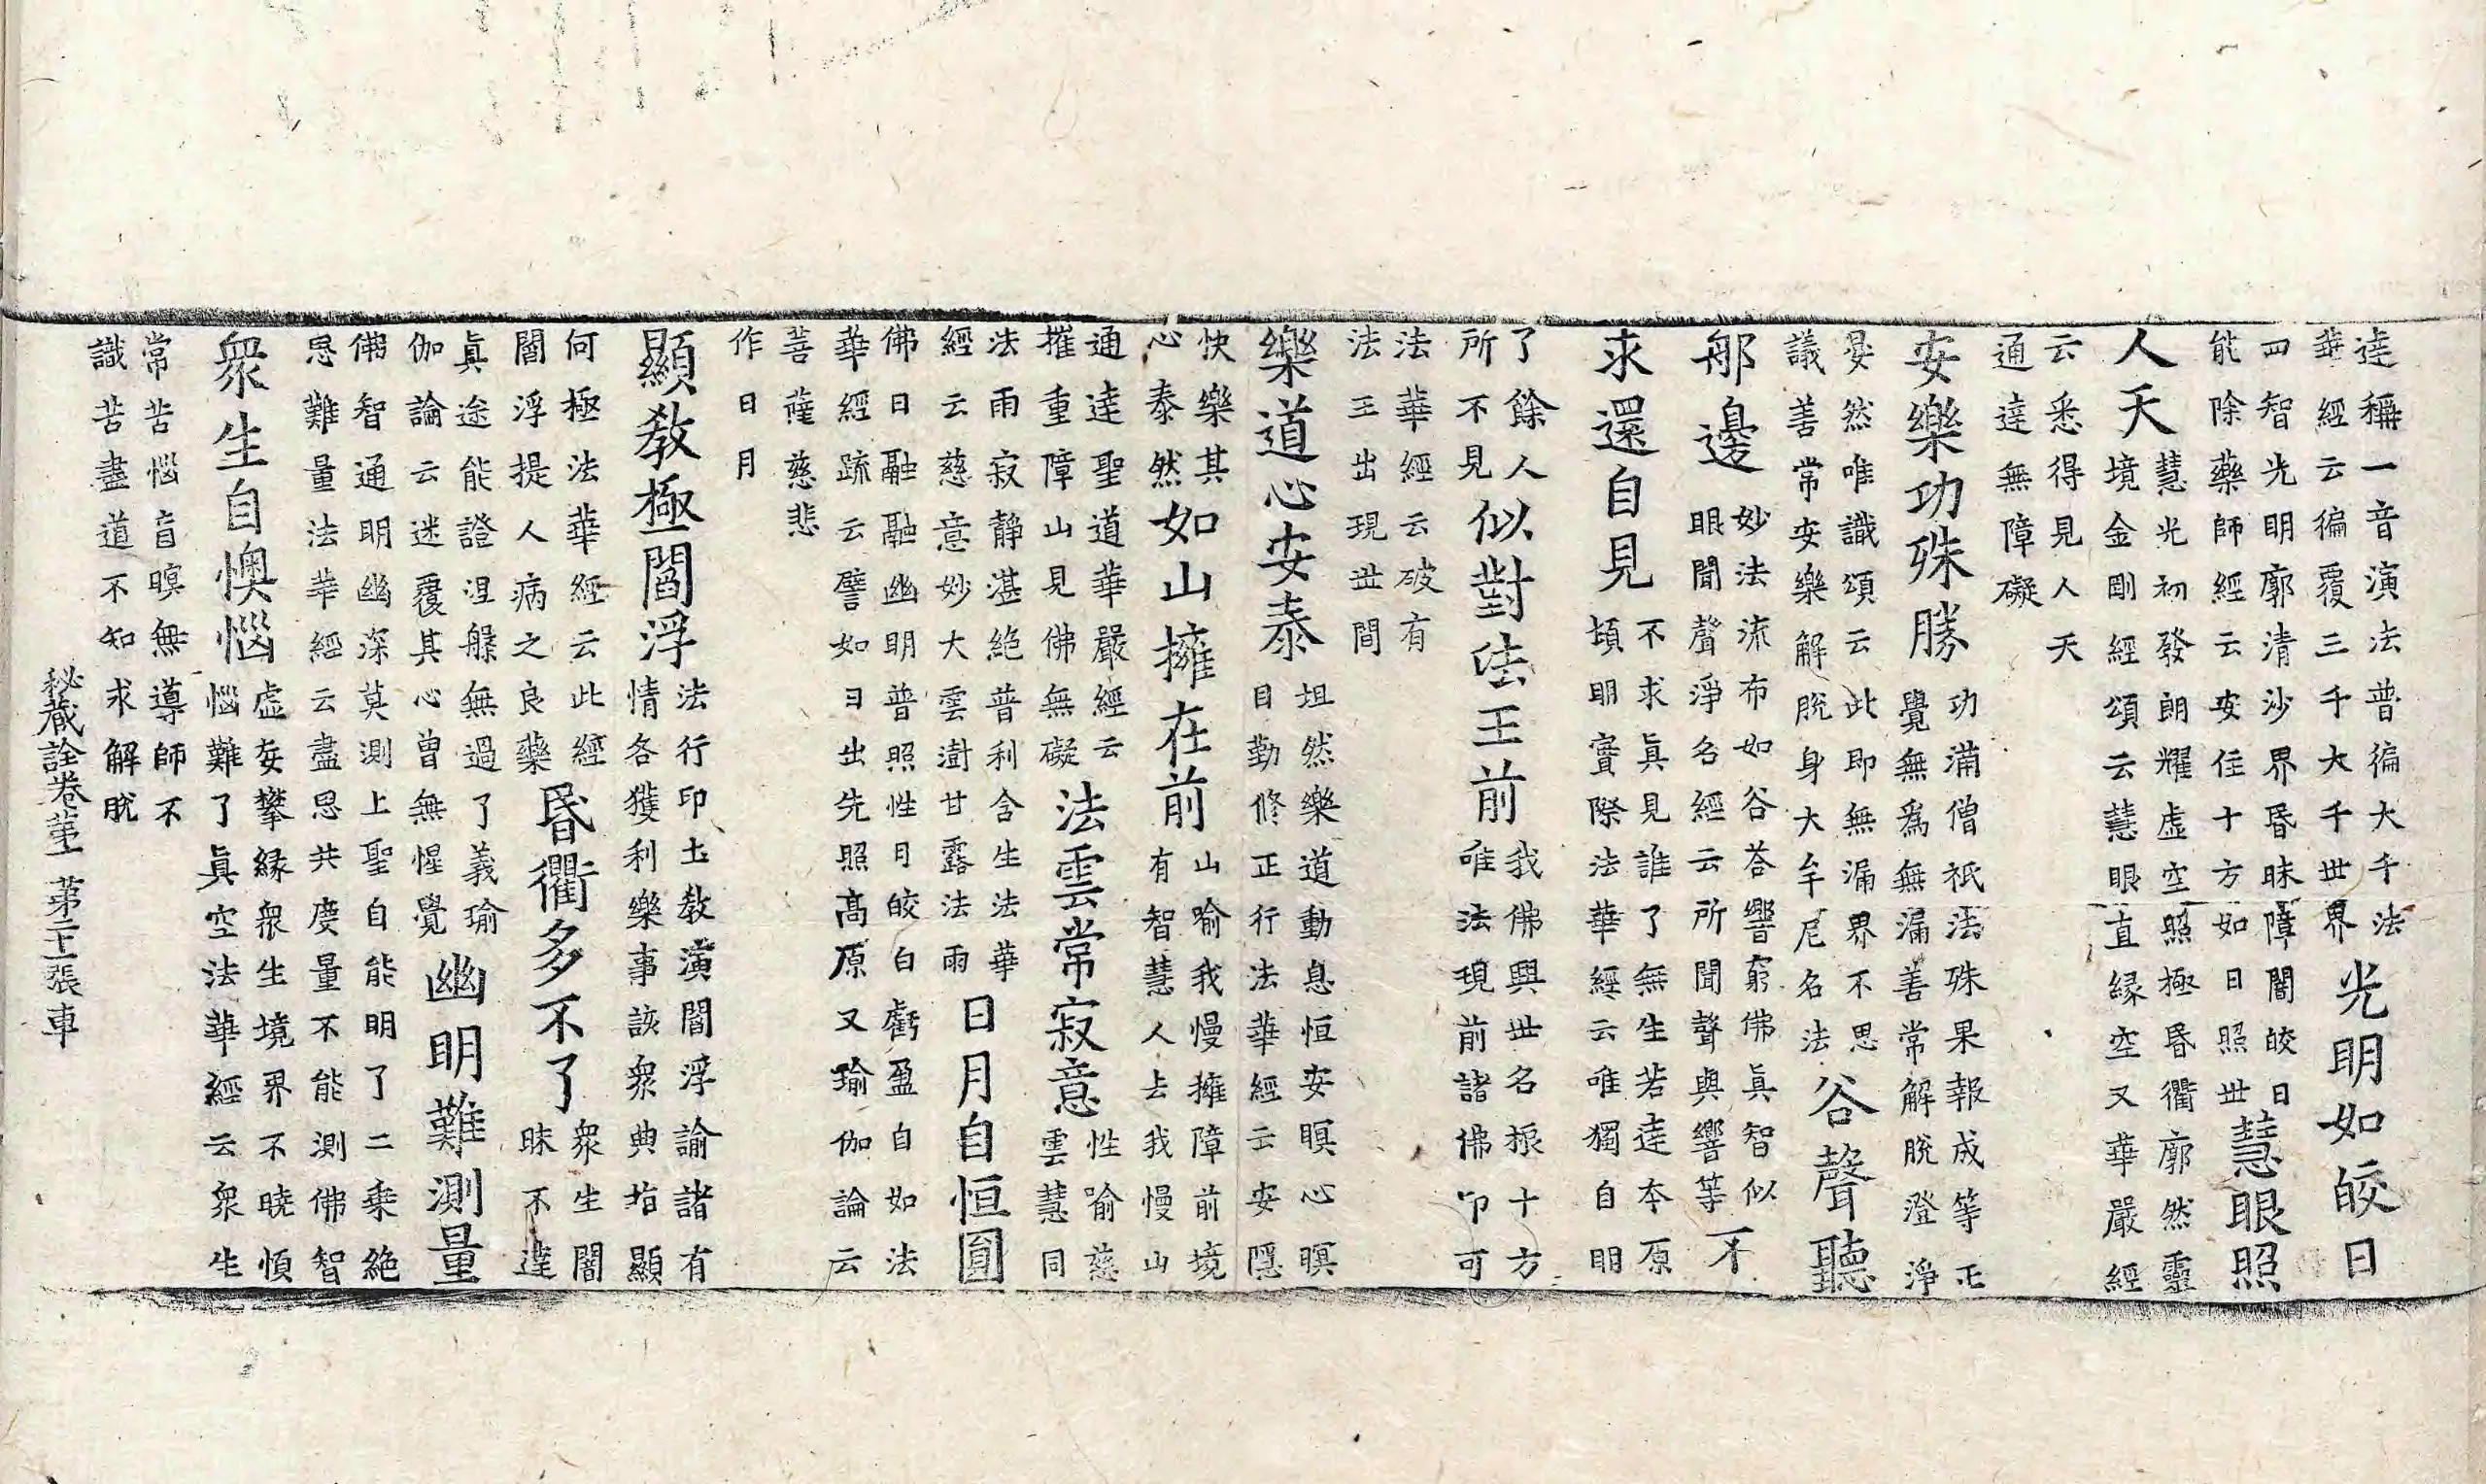 達稱一音演法普徧大千法
華經云徧覆三千大千世界
光明如皎日
四智光明廓清沙界昏昧障闇皎日
能除藥師經云安住十方如日照世
慧眼照
人天
慧光初發朗耀虛空照極昏衢廓然靈
境金剛經頌云慧眼直縁空又華嚴經
云悉得見人天
通達無障礙
安樂功殊勝
功滿僧祇法殊果報成等正
覺無爲無漏善常解脫澄淨
晏然唯識頌云此即無漏界不思
議善常安樂解脫身大牟尼名法
谷聲聽
那邊
妙法流布如谷荅響窮佛真智似
眼聞聲淨名經云所聞聲與響等
不
求還自見
不求真見誰了無生若達本原
頃明實際法華經云唯獨自明
了餘人
所不見
似對法王前
我佛興世名振十方
唯法現前諸佛印可
法華經云破有
法王出現世間
樂道心安泰
坦然樂道動息恒安暝心暝
目勤修正行法華經云安隱
快樂其
心泰然
如山擁在前
山喻我慢擁障前境
有智慧人去我慢山
通達聖道華嚴經云
摧重障山見佛無礙
法雲常寂意
性喻慈
雲慧同
法雨寂靜湛絶普利含生法華
經云慈意妙大雲澍甘露法雨
日月自恒圓
佛日融融幽明普照性月皎白虧盈自如法
華經疏云譬如日出先照高原又瑜伽論云
菩薩慈悲
作日月
顯教極閻浮
法行印土教演閻浮諭諸有
情各獲利樂事該衆典指顯
何極法華經云此經
閻浮提人病之良藥
昏衢多不了
衆生闇
昧不達
眞途能證涅槃無過了義瑜
伽論云迷覆其心曾無惺覺
幽明難測量
佛智通明幽深莫測上聖自能明了二乘絶
思難量法華經云盡思共度量不能測佛智
衆生自懊惱
虛妄攀縁衆生境界不曉煩
惱難了眞空法華經云衆生
常苦惱盲暝無導師不
識苦盡道不知求解脫
秘藏詮卷苐 苐 張 車